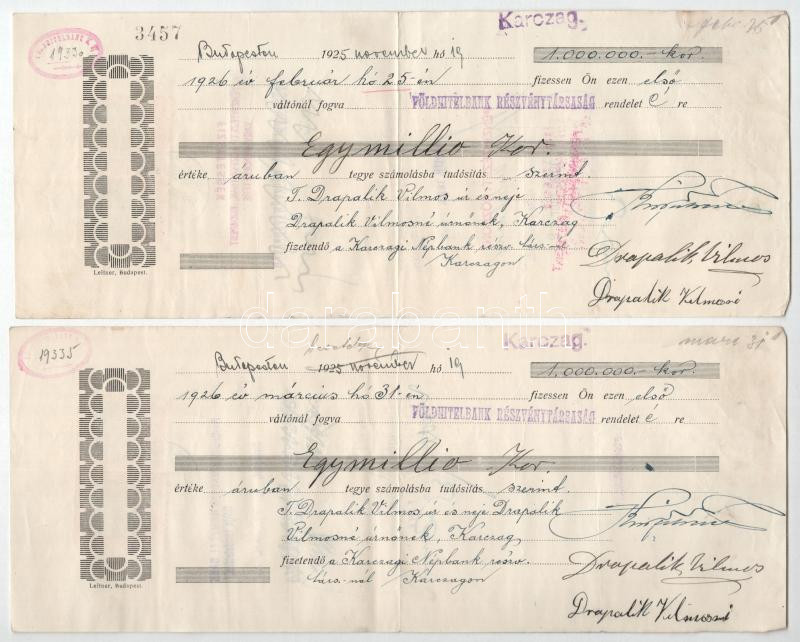 3457
Karczag.
FÖLDHITELBANK R.T.
1933
Budapesten 1925 november hó 19 1.000.000.- kor.
1926 év február hó 25-én fizessen Ön ezen első
váltónál fogva FÖLDHITELBANK RÉSZVÉNYTÁRSASÁG rendelet é re
Egymillio Kor.
értéke áruban tegye számolásba tudósitás szerint.
T. Drapalik Vilmos úr és neje
Drapalik Vilmosné úrnőnek, Karczag
fizetendő a Karczagi Népbank részv. társ-nál
Karczagon
Drapalik Vilmos
Drapalik Vilmosné
Leitner, Budapest.
darabanth
Karczag.
márc 31
19335
Budapesten 1925 november hó 19 1.000.000.- kor.
1926 év március hó 31-én fizessen Ön ezen első
váltónál fogva FÖLDHITELBANK RÉSZVÉNYTÁRSASÁG rendelet é re
Egymillio Kor.
értéke áruban tegye számolásba tudósitás szerint.
T. Drapalik Vilmos úr és neje Drapalik
Vilmosné úrnőnek, Karczag
fizetendő a Karczagi Népbank részv.
társ-nál Karczagon
Drapalik Vilmos
Drapalik Vilmosné
Leitner, Budapest.